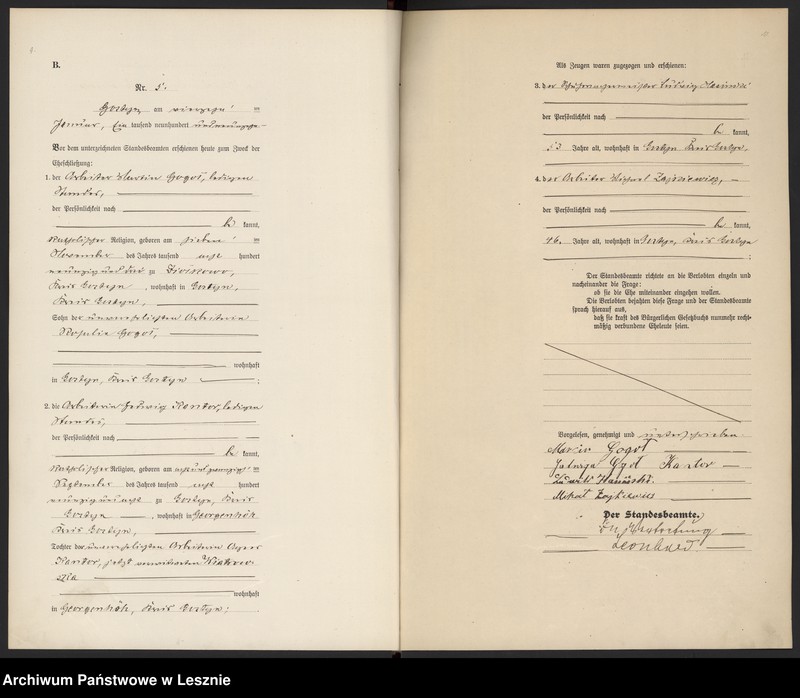 B.
Nr. 5.
Gostyn am vierzehn
Januar, Ein tausend neunhundert
Vor dem unterzeichneten Standesbeamten erschienen heute zum Zweck der
Eheschließung:
1. der Arbeiter Martin Gogoł, ledigen
Standes,
der Persönlichkeit nach
be kannt,
katholischer Religion, geboren am sieben
November des Jahres tausend acht hundert
neunzig und drei zu
Kreis Gostyn, wohnhaft in Gostyn,
Kreis Gostyn,
Sohn der unverehelichten Arbeiterin
Rosalie Gogoł,
wohnhaft
in Gostyn, Kreis Gostyn ;
2. die Arbeiterin Hedwig Kantor, ledigen
Standes,
der Persönlichkeit nach
be kannt,
katholischer Religion, geboren am
September des Jahres tausend acht hundert
neunzig und acht zu Gostyn, Kreis
Gostyn , wohnhaft in Georgenhöh
Kreis Gostyn,
Tochter der unverehelichten Arbeiterin Agnes
Kantor, jetzt verwitweten
wohnhaft
in Georgenhöh, Kreis Gostyn;
Als Zeugen waren zugezogen und erschienen:
3. der Schuhmachermeister Ludwig
der Persönlichkeit nach
be kannt,
53 Jahre alt, wohnhaft in Gostyn Kreis Gostyn,
4. der Arbeiter Michael
der Persönlichkeit nach
be kannt,
46 Jahre alt, wohnhaft in Gostyn, Kreis Gostyn
;
Der Standesbeamte richtete an die Verlobten einzeln und
nacheinander die Frage:
ob sie die Ehe miteinander eingehen wollen.
Die Verlobten bejahten diese Frage und der Standesbeamte
sprach hierauf aus,
daß sie kraft des Bürgerlichen Gesetzbuchs nunmehr recht-
mäßig verbundene Eheleute seien.
Vorgelesen, genehmigt und unterschrieben
Marcin Gogoł
Jadwiga Kantor
Der Standesbeamte.
In Vertretung
Leonhard.
Archiwum Państwowe w Lesznie